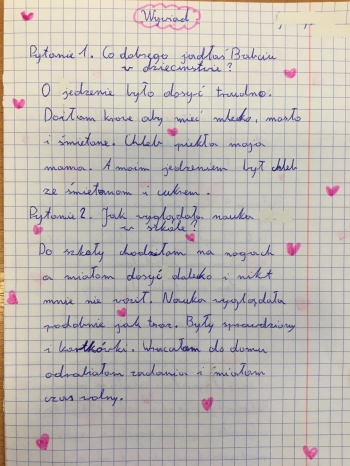 Wywiad
Pytanie 1. Co dobrego jadłaś Babciu
w dzieciństwie?
O jedzenie było dosyć trudno.
Doiłam krowę aby mieć mleko, masło
i śmietanę. Chleb piekła moja
mama. A moim jedzeniem był chleb
ze śmietanom i cukrem.
Pytanie 2. Jak wyglądała nauka
w szkole?
Do szkały chodzełam na nogach
a miałam dosyć daleko i nikt
mnie nie woził. Nauka wyglądała
podobnie jak teraz. Były sprawdziany
i kartkówki. Wracałam do domu
odrabiałam zadania i miałam
czas wolny.